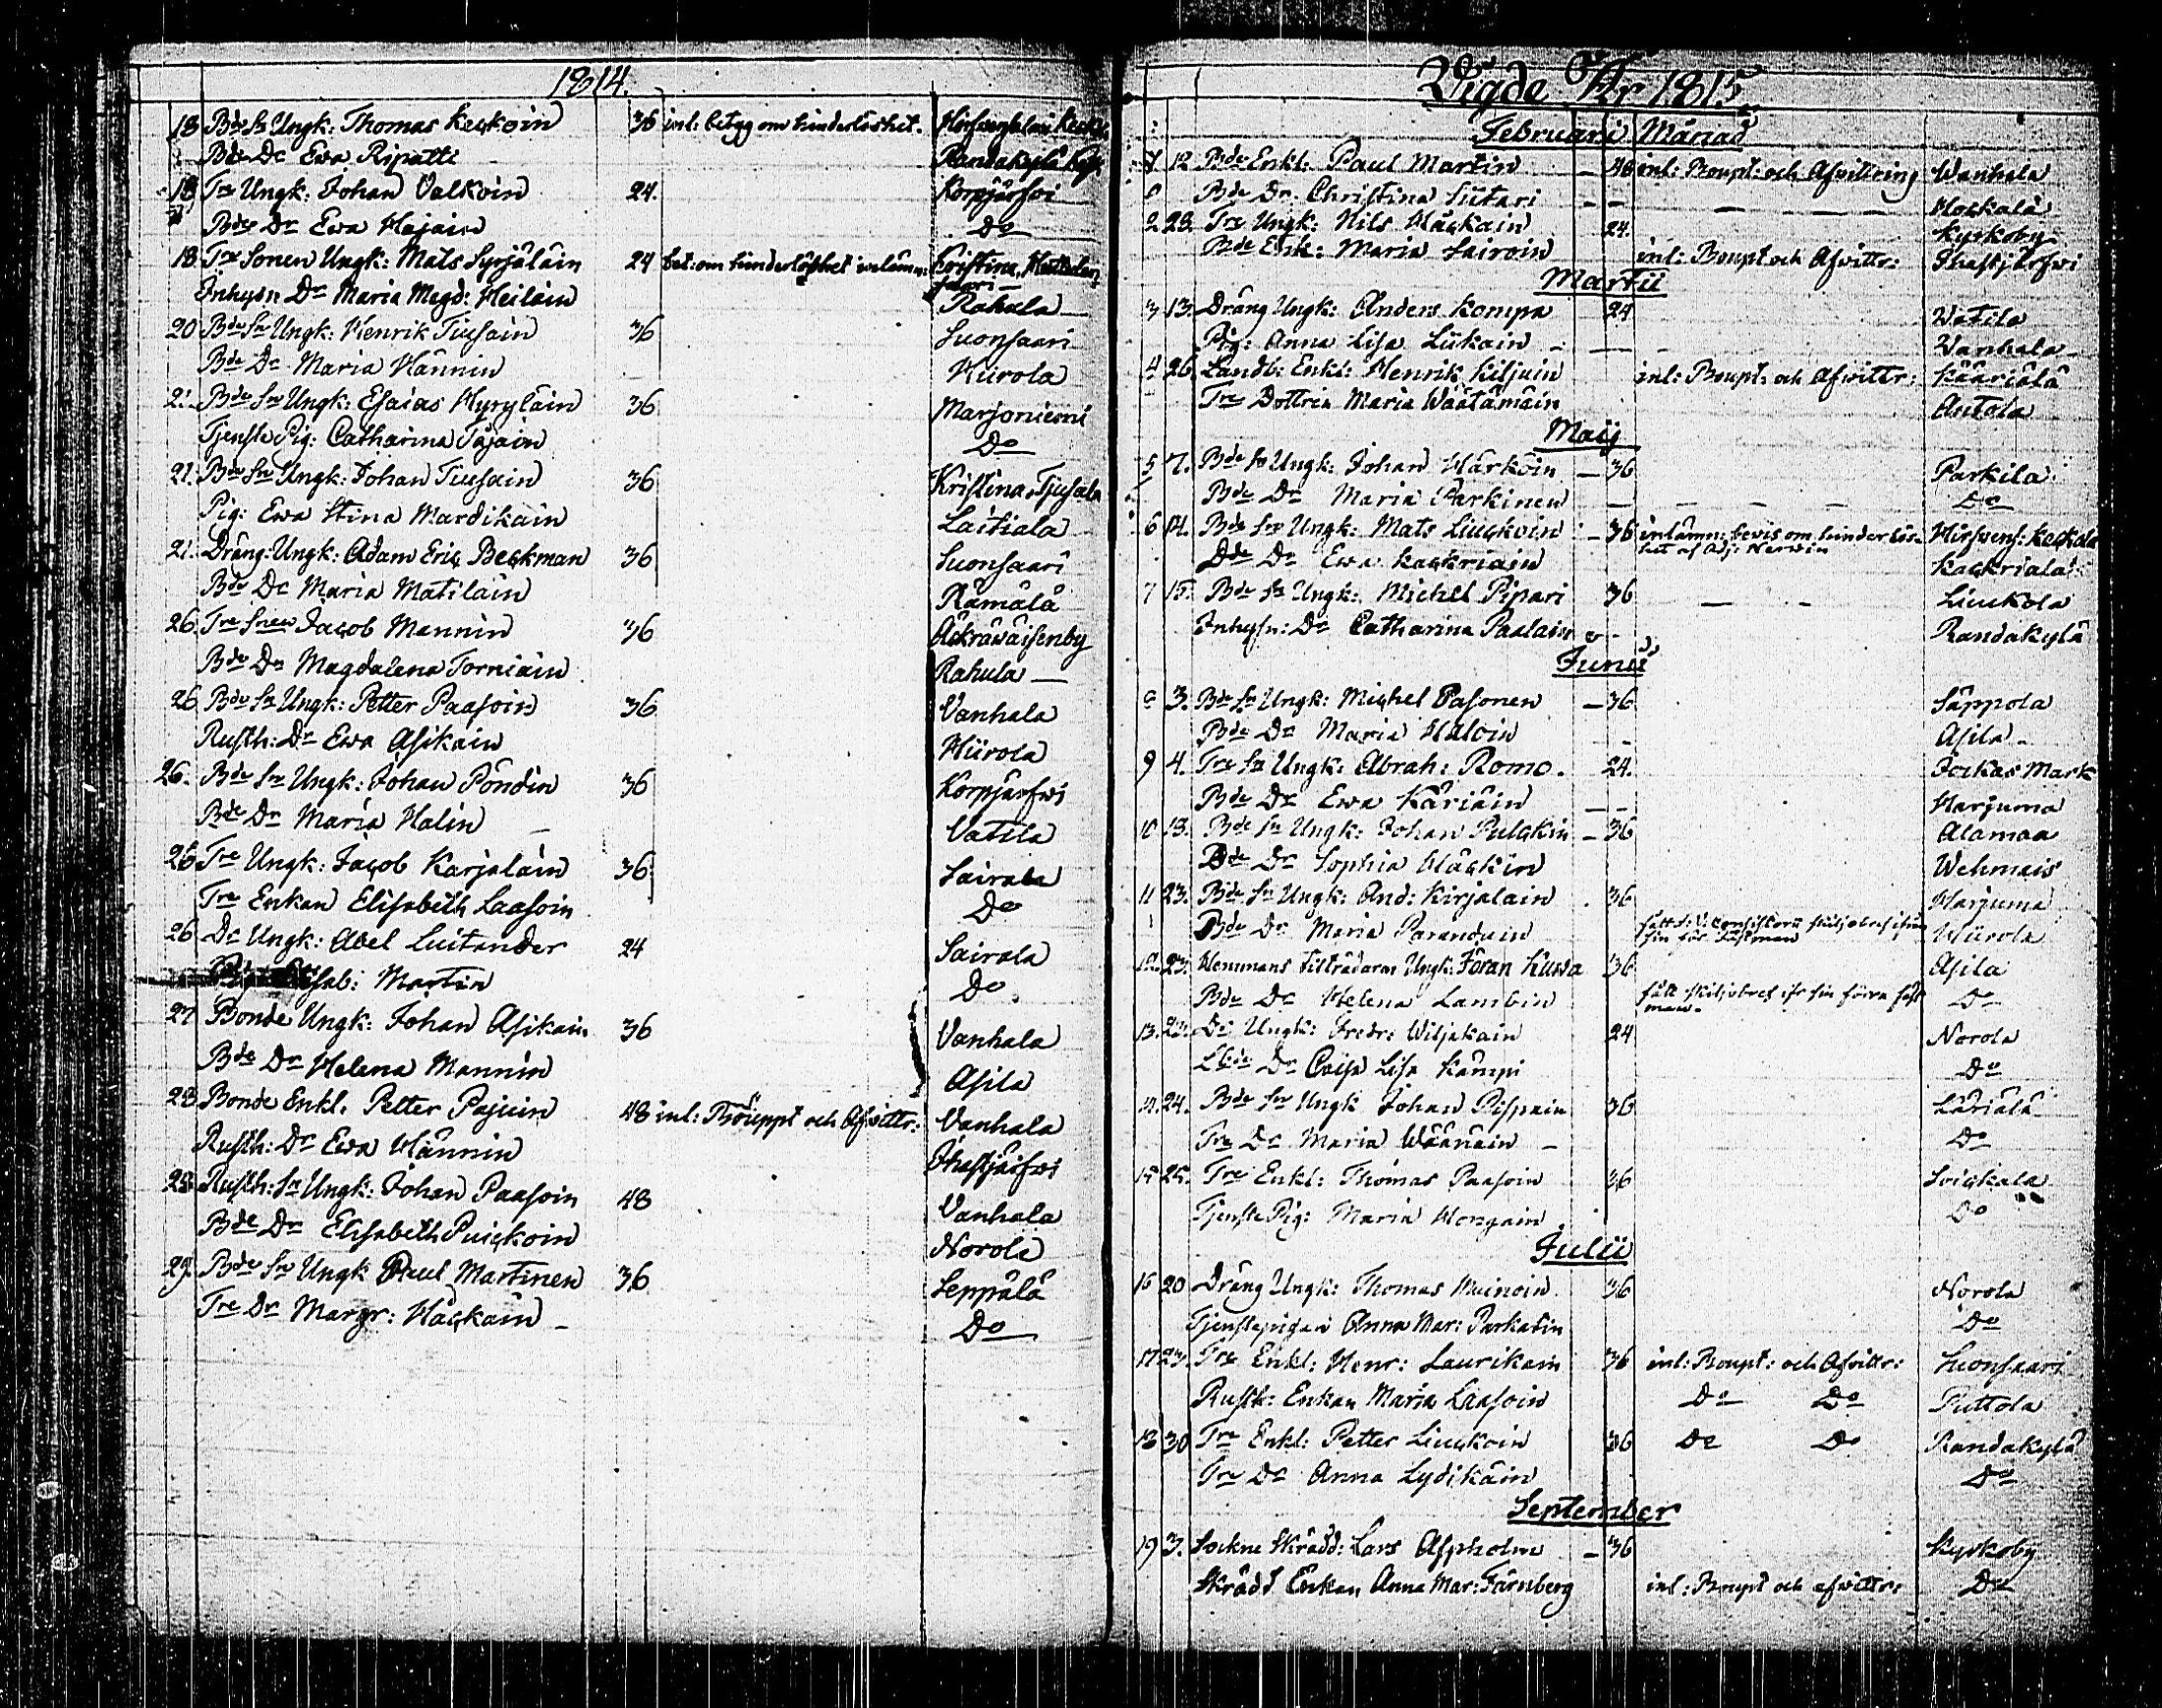 1814.
18 Bde Sn Ungk: Thomas Keckoin 36 inl: betyg om hinderlöshet. Hirfvensalmi Keckola
Bde Dr Ewa Ripatti Randakylä
18 Tre Ungk: Johan Valkoin 24. Korpjärfvi
Bde Dr Ewa Hajain Do
18 Tre Sonen Ungk: Mats Syrjäläin 24 bet: om hinderlöshet inlämn: Cristina,
Inhysn Dr Maria Magd: Heiläin Rahula
20 Bde Sn Ungk: Henrik Tiusain 36 Suonsaari
Bde Dr Maria Hännin Hiirola
21. Bde Sn Ungk: Esaias Hyryläin 36 Marjoniemi
Tjenste Pig: Catharina Täjäin Do
21. Bde Sn Ungk: Johan Tiusain 36 Kristina, Tjusala
Pig: Ewa Stina Mardikain Laitiala
21. Dräng: Ungk: Adam Eric Beckman 36 Suonsaari
Bde Dr Maria Matilain Rämälä
26 Tre Snen Jacob Mannin 36
Bde Dr Magdalena Torniain Rahula
26 Bde Sn Ungk: Petter Paasoin 36 Vanhala
Rusth: Dr Ewa Asikain Hiirola
26. Bde Sn Ungk: Johan Pöndin 36 Korpjärfvi
Bde Dr Maria Halin Vatila
26 Tre Ungk: Jacob Karjalain 36 Sairala
Tre Enkan Elisabeth Laasoin Do
26 Dr Ungk: Abel Luitander 24 Sairala
Martin Do
27 Bonde Ungk: Johan Asikain 36 Vanhala
Bde Dr Helena Mannin Asila
28 Bonde Enkl: Petter Pajuin 48 inl: Bouppt och Afvittr: Vanhala
Rusth: Dr Ewa Hännin Ihastjärfvi
28 Rusth: Sn Ungk: Johan Paasoin 48 Vanhala
Bde Dr Elisabeth Puickoin Norola
29. Bde Sn Ungk Paul Martinen 36 Seppälä
Tre Dr Margr: Häckäin Do
Vigde År 1815
Februari Månad
1 12 Bde Enkl: Paul Martin 48 inl: Boupt: och Afvittring Wanhala
Bde Dr: Christina Siitari Hockala
2 28. Tre Ungk: Nils Häckäin 24. Kyrkoby
Bde Enk: Maria Sairoin inl: Boupt och Afvittr: Ihastjärfvi
Martii
3 13. Dräng Ungk: Anders Kompa 24 Watila
Pig: Anna Lisa Liikain Wanhala
4 26. Landb: Enkl: Henrik Kiljuin inl: Boupt: och Afvittr: Kääriälä
Tre Dottren Maria Wäätämäin Antola
Maij
5 7. Bde Sn Ungk: Johan Härköin 36 Parkila
Bde Dr Maria Parkinen Do
6 14. Bde Sn Ungk: Mats Liuckoin 36 inlämn: bevis om hinderlös- Hirfvens: Keckola
het af Adj: Nervin
Bde Dr Ewa Kackriain Kackriala
7 15. Bde Sn Ungk: Michel Pipari 36 Liuckola
Inhysn: Dr Catharina Paalain Randakylä
Junii
8 3. Bde Sn Ungk: Michel Pasonen 36 Säppola
Bde Dr Maria Haloin Asila
9 4. Tre Sn Ungk: Abrah: Romo. 24. Jockas Mark
Bde Dr Ewa Käriäin Harjuma
10 18. Bde Sn Ungk: Johan Pulckin 36 Alamaa
Bde Dr Sophia Häckin Wehmais
11 23. Bde Sn Ungk: And: Kirjalain 36 Harjuma
Bde Dr Maria Parandain Hiirola
12. 23. Hemmans Tillträdaren Ungk: Jöran Kussa 36 Asila
Bde Dr Helena Lambin Do
13. 23. Dr Ungk: Fredr: Wiljakain 24 Norola
Dr Caisa Lisa Kämpi Do
14. 24. Bde Sn Ungk Johan Pispain 36 Läriälä
Tre Dr Maria Wäänäin Do
15 25. Tre Enkl: Thomas Paasoin 36 Loickala
Tjenste Pig: Maria Hongain Do
Julii
16 20 Dräng Ungk: Thomas Muinoin 36 Norola
Tjenstepigan Anna Mar: Parkatin Do
17 23. Tre Enkl: Henr: Laurikain 36 inl: Boupt: och Afvittr: Suonsaari
Rusth: Enkan Maria Laasoin Do Do Puttola
18 30 Tre Enkl: Petter Liuckoin 36 Do Do Randakylä
Tre Dr Anna Lydikäin Do
September
19 3. Sockne Skrädd: Lars Aspholm 36 Kyrkoby
Skrädd Enkan Anna Mar: Färnberg inl: Boupt och afvittr: Do